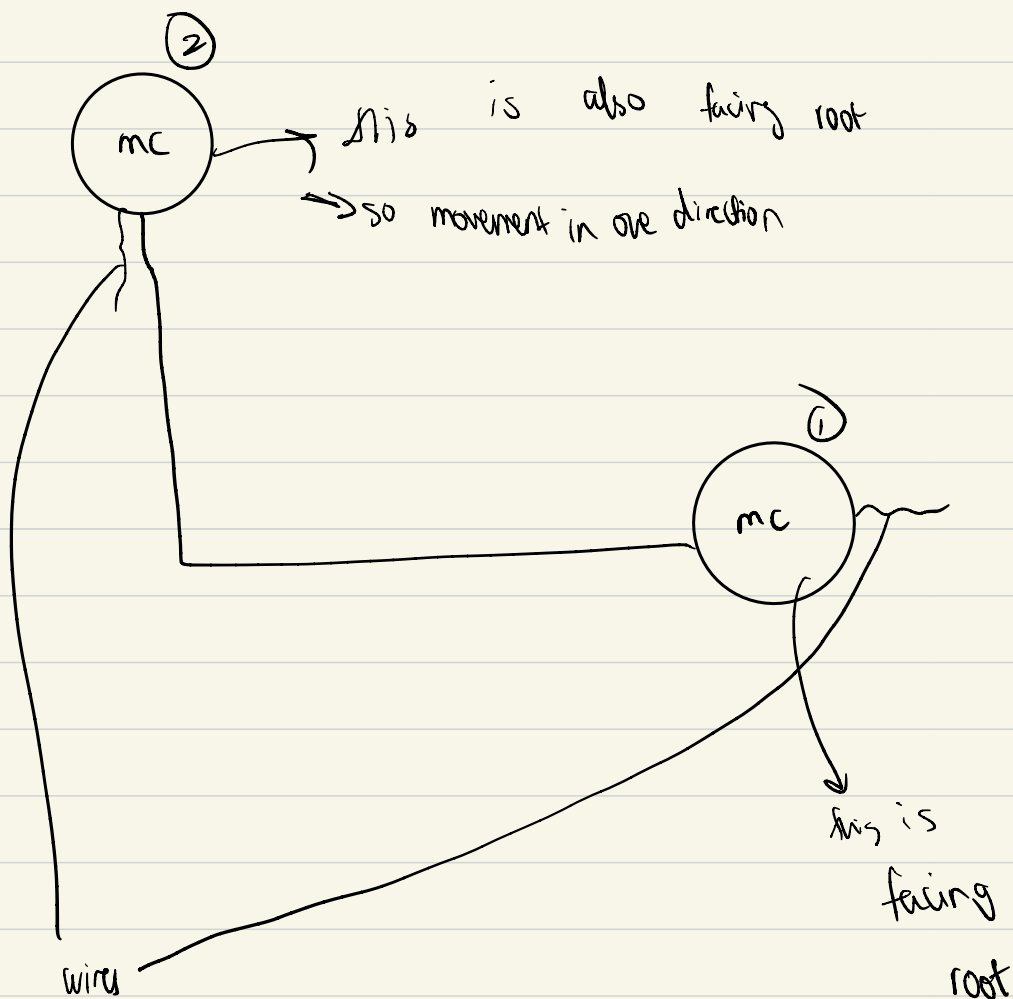 ②
mc
this is also facing root
→ so movement in one direction
①
mc
this is
facing
root
wires